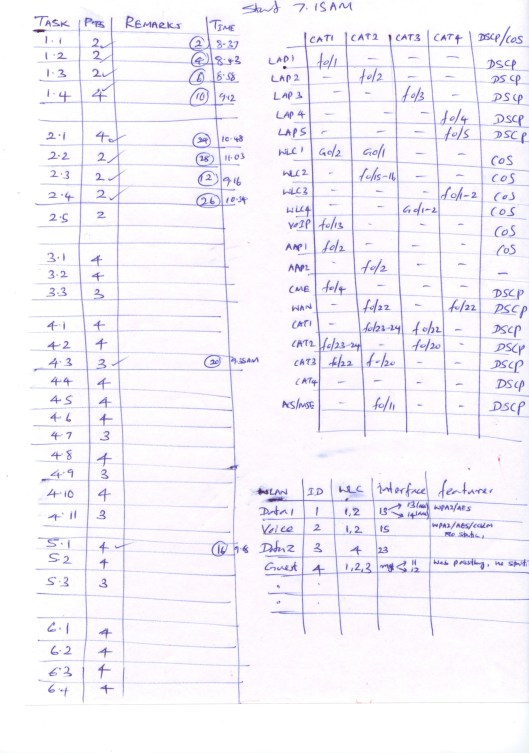 Start 7.15AM
TASK PTS REMARKS TIME
1.1 2 ② 8.37
1.2 2 ④ 8.43
1.3 2 ⑥ 8.58
1.4 4 ⑩ 9.12
2.1 4 ㉔ 10.48
2.2 2 ㉘ 11.03
2.3 2 ⑫ 9.16
2.4 2 ㉖ 10.54
2.5 2
3.1 4
3.2 4
3.3 3
4.1 4
4.2 4
4.3 3 ⑳
4.4 4
4.5 4
4.6 4
4.7 3
4.8 4
4.9 3
4.10 4
4.11 3
5.1 4 ⑯
5.2 4
5.3 3
6.1 4
6.2 4
6.3 4
6.4 4
CAT1 CAT2 CAT3 CAT4 DSCP/COS
LAP1 fo/1 - - - DSCP
LAP2 - fo/2 - - DSCP
LAP3 - - fo/3 - DSCP
LAP4 - - - fo/4 DSCP
LAP5 - - - fo/5 DSCP
WLC1 Go/2 Go/1 - - COS
WLC2 - fo/15-16 - - COS
WLC3 - - - fo/1-2 COS
WLC4 - - Go/1-2 - COS
VOIP fo/13 - - - COS
AAP1 fo/2 - - - COS
AAP2 - fo/2 - - -
CME fo/4 - - - DSCP
WAN - fo/22 - fo/22 DSCP
CAT1 - fo/23-24 fo/22 - DSCP
CAT2 fo/23-24 - fo/20 - DSCP
CAT3 fo/22 fo/20 - - DSCP
CAT4 - - - - DSCP
ACS/MSE - fo/11 - - DSCP
WLAN ID WLC Interface features
Data1 1 1,2 13 WPA2/AES
Voice 2 1,2 15 WPA2/AES/CCKM
no static,
Data2 3 4 23
Guest 4 1,2,3 11 12 Web no